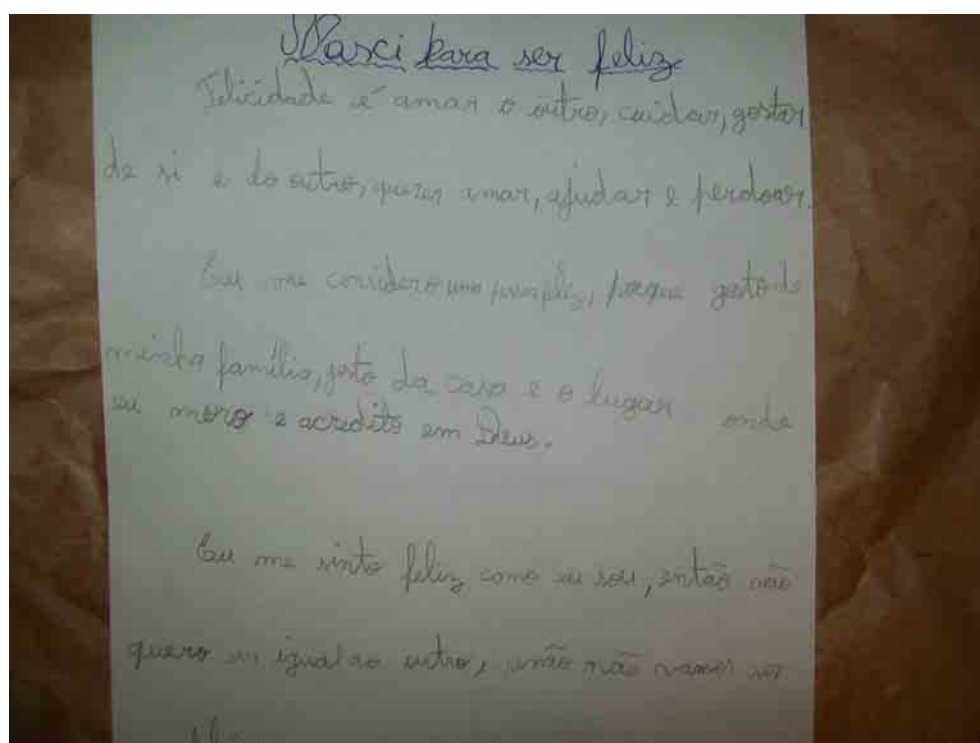 Nasci para ser feliz
Felicidade é amar o outro, cuidar, gostar
de si e do outro, querer amar, ajudar e perdoar.
Eu me considero uma feliz, porque gosto de
minha família, gosto da casa e o lugar onde
eu moro e acredito em Deus.
Eu me sinto feliz como eu sou, então não
quero ser igual ao outro, senão não vamos ser